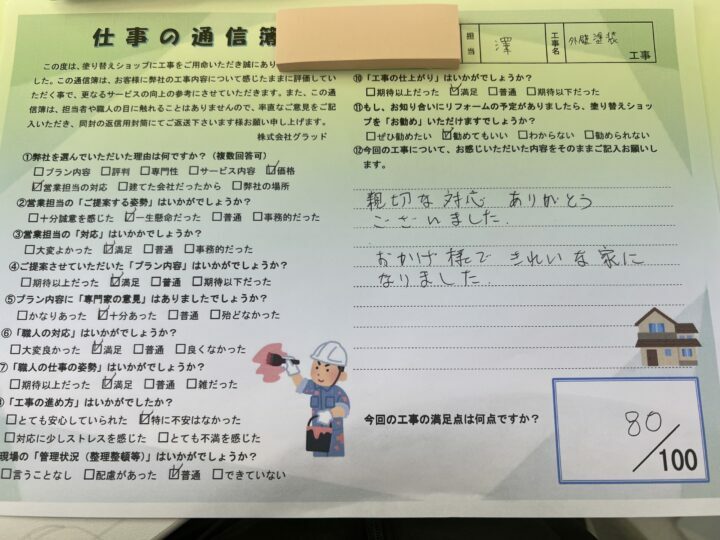 仕事の通信簿
担当 澤 工事名 外壁塗装 工事
この度は、塗り替えショップに工事をご用命いただき誠にあり
した。この通信簿は、お客様に弊社の工事内容について感じたままに評価してい
ただく事で、更なるサービスの向上の参考にさせていただきます。また、この通
信簿は、担当者や職人の目に触れることはありませんので、率直なご意見をご記
入いただき、同封の返信用封筒にてご返送下さいます様お願い申し上げます。
株式会社グラッド
①弊社を選んでいただいた理由は何ですか?(複数回答可)
□プラン内容 □評判 □専門性 □サービス内容 ☑価格
☑営業担当の対応 □建てた会社だったから □弊社の場所
②営業担当の「ご提案する姿勢」はいかがでしょうか?
□十分誠意を感じた ☑一生懸命だった □普通 □事務的だった
③営業担当の「対応」はいかがでしょうか?
□大変よかった ☑満足 □普通 □事務的だった
④ご提案させていただいた「プラン内容」はいかがでしょうか?
□期待以上だった ☑満足 □普通 □期待以下だった
⑤プラン内容に「専門家の意見」はありましたでしょうか?
□かなりあった ☑十分あった □普通 □殆どなかった
⑥「職人の対応」はいかがでしょうか?
□大変良かった ☑満足 □普通 □良くなかった
⑦「職人の仕事の姿勢」はいかがでしょうか?
□期待以上だった ☑満足 □普通 □雑だった
「工事の進め方」はいかがでしたか?
□とても安心していられた ☑特に不安はなかった
□対応に少しストレスを感じた □とても不満を感じた
現場の「管理状況(整理整頓等)」はいかがでしょうか?
□言うことなし □配慮があった ☑普通 □できていない
⑩「工事の仕上がり」はいかがでしょうか?
□期待以上だった ☑満足 □普通 □期待以下だった
⑪もし、お知り合いにリフォームの予定がありましたら、塗り替えショッ
プを「お勧め」いただけますでしょうか?
□ぜひ勧めたい ☑勧めてもいい □わからない □勧められない
⑫今回の工事について、お感じいただいた内容をそのままご記入お願いし
ます。
親切な対応 ありがとう
ございました.
おかげ様で きれいな家に
なりました.
今回の工事の満足点は何点ですか?
80/100